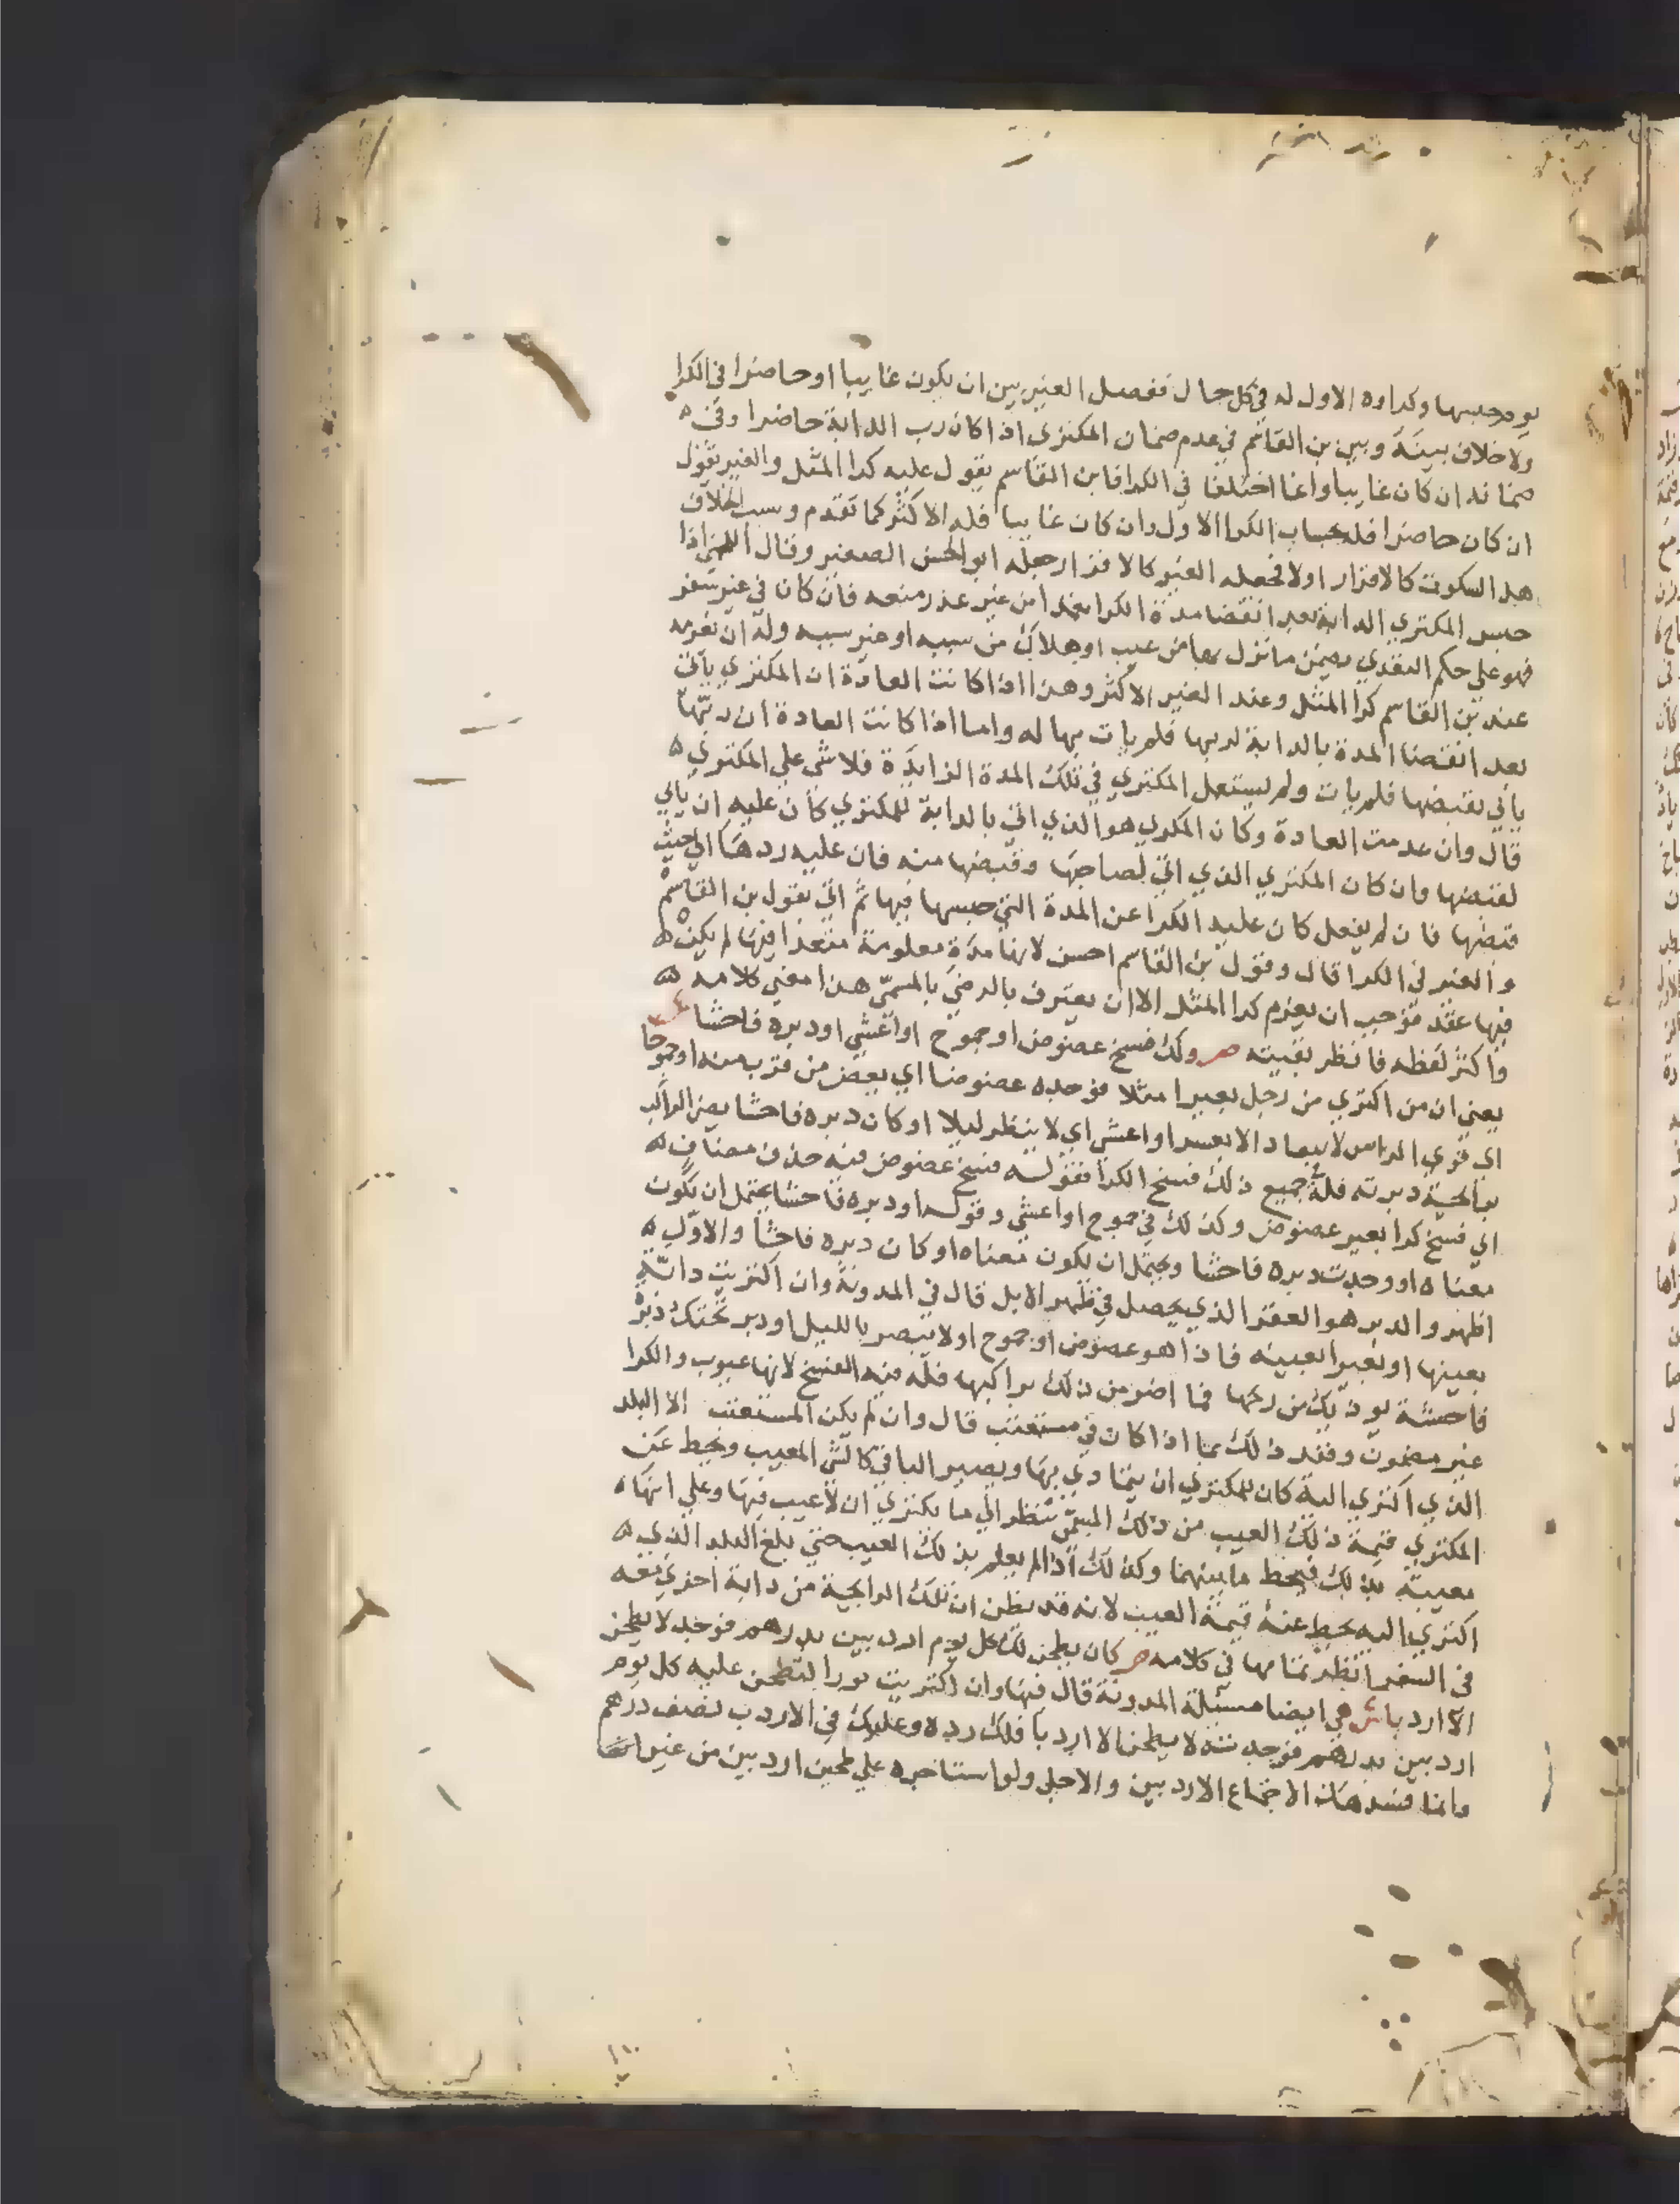 يوم حبسها وكراوه الاول له في كل حال ففصل الغير بين ان يكون غايبا او حاضرا في الكرا
ولا خلاف بينه وبين بن القاسم في عدم ضمان المكتري اذا كان رب الدابة حاضرا وفي
ضمانه ان كان غايبا وانما اختلفا في الكرا فابن القاسم يقول عليه كرا المثل والغير يقول
ان كان حاضرا فله بحساب الكرا الاول وان كان غايبا فله الاكثر كما تقدم وسبب الخلاف
هل السكوت كالاقرار اولا فجعله الغير كالاقرار جعله ابو الحسن الصغير وقال اللخمي اذا
حبس المكتري الدابة بعد انقضا مدة الكرا متعمدا من غير عذر منعه فان كان في غير سفر
فهو علي حكم التعدي يضمن ما نزل بها من عيب او هلاك من سببه او غير سببه وله ان يغرمه
عند بن القاسم كرا المثل وعند الغير الاكثر وهذا اذا كانت العادة ان المكتري ياتي
بعد انقضا المدة بالدابة لربها فلم يات بها له واما اذا كانت العادة ان ربها
ياتي يقبضها فلم يات ولم يستعمل المكتري في تلك المدة الزايدة فلا شي علي المكتري
قال وان عدمت العادة وكان المكري هو الذي اتي بالدابة للمكتري كان عليه ان ياتي
لقبضها وان كان المكتري الذي اتي لصاحبها وقبضها منه فان عليه ردها الي حيث
قبضها فان لم يفعل كان عليه الكرا عن المدة التي حبسها فيها ثم اتي بقول بن القاسم
والغير في الكرا قال وقول بن القاسم احسن لانها مدة معلومة متعدا فيها لم يكن
فيها عقد فوجب ان يغرم كرا المثل الا ان يعترف بالرضي بالمسمي هذا معني كلامه
واكثر لفظه فانظر بقيته ص وكذ فسخ عضوض او جموح او اعشي او دبره فاحشا
يعني ان من اكتري من رجل بعيرا مثلا فوجده عضوضا اي يعض من قرب منه او جموحا
اي قوي الراس لا ينقاد الا بعسر او اعشي اي لا ينظر ليلا او كان دبره فاحشا يضر الراكب
برايحة دبرته فله جميع ذلك فسخ الكرا فقوله فسخ عضوض فيه حذف مضاف
اي فسخ كرا بعير عضوض وكذلك في جموح او اعشي وقوله او دبره فاحشا يحتمل ان يكون
معناه او وجدت دبره فاحشا ويحتمل ان يكون معناه او كان دبره فاحشا والاول
اظهر والدبر هو العقر الذي يحصل في ظهر الابل قال في المدونة وان اكتريت دابة
بعينها او بعيرا بعينه فاذا هو عضوض او جموح او لا يبصر بالليل او دبر تحتك دبرة
فاحشة يوذيك من ريحها فما اضر من ذلك براكبها فله فيه الفسخ لانها عيوب والكرا
غير مضمون وقيد ذلك بما اذا كان في مستعتب قال وان لم يكن المستعتب الا البلد
الذي اكتري اليه كان للمكتري ان يتمادي بها ويصير الباقي كالشي المعيب ويحط عن
المكتري قيمة ذلك العيب من ذلك المسمي ينظر الي ما يكتري ان لا عيب فيها وعلي انها
معيبة بذلك فيحط ما بينهما وكذلك اذا لم يعلم بذلك العيب حتي بلغ البلد الذي
اكتري اليه يحط عنه قيمة العيب لانه قد يظن ان تلك الرايحة من دابة اخري معه
في السفر انظر تمامها في كلامه ص كان يطحن لك كل يوم اردبين بدرهم فوجد لا يطحن
الا اردبا ش هي ايضا مسئلة المدونة قال فيها وان اكتريت ثورا لتطحن عليه كل يوم
اردبين بدرهم فوجدته لا يطحن الا اردبا فلك رده وعليك في الاردب نصف درهم
وانما فسد هذا الاجتماع الاردبين والاجل ولو استاجره علي طحين اردبين من غير